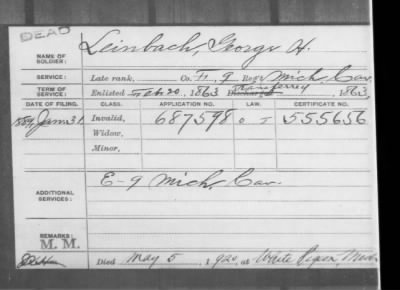 DEAD
NAME OF SOLDIER: Leinbach, George H.
SERVICE: Late rank, Co. F, 9 Reg't Mich. Cav.
TERM OF SERVICE: Enlisted Feb 20, 1863 Discharged Transferred, 1863
DATE OF FILING. CLASS. APPLICATION NO. LAW. CERTIFICATE NO.
1889 Jan 31 Invalid, 687598 555656
Widow,
Minor,
ADDITIONAL SERVICES: E-9 Mich. Cav.
REMARKS:
M. M.
Died May 5, 1920, at White Pigeon, Mich